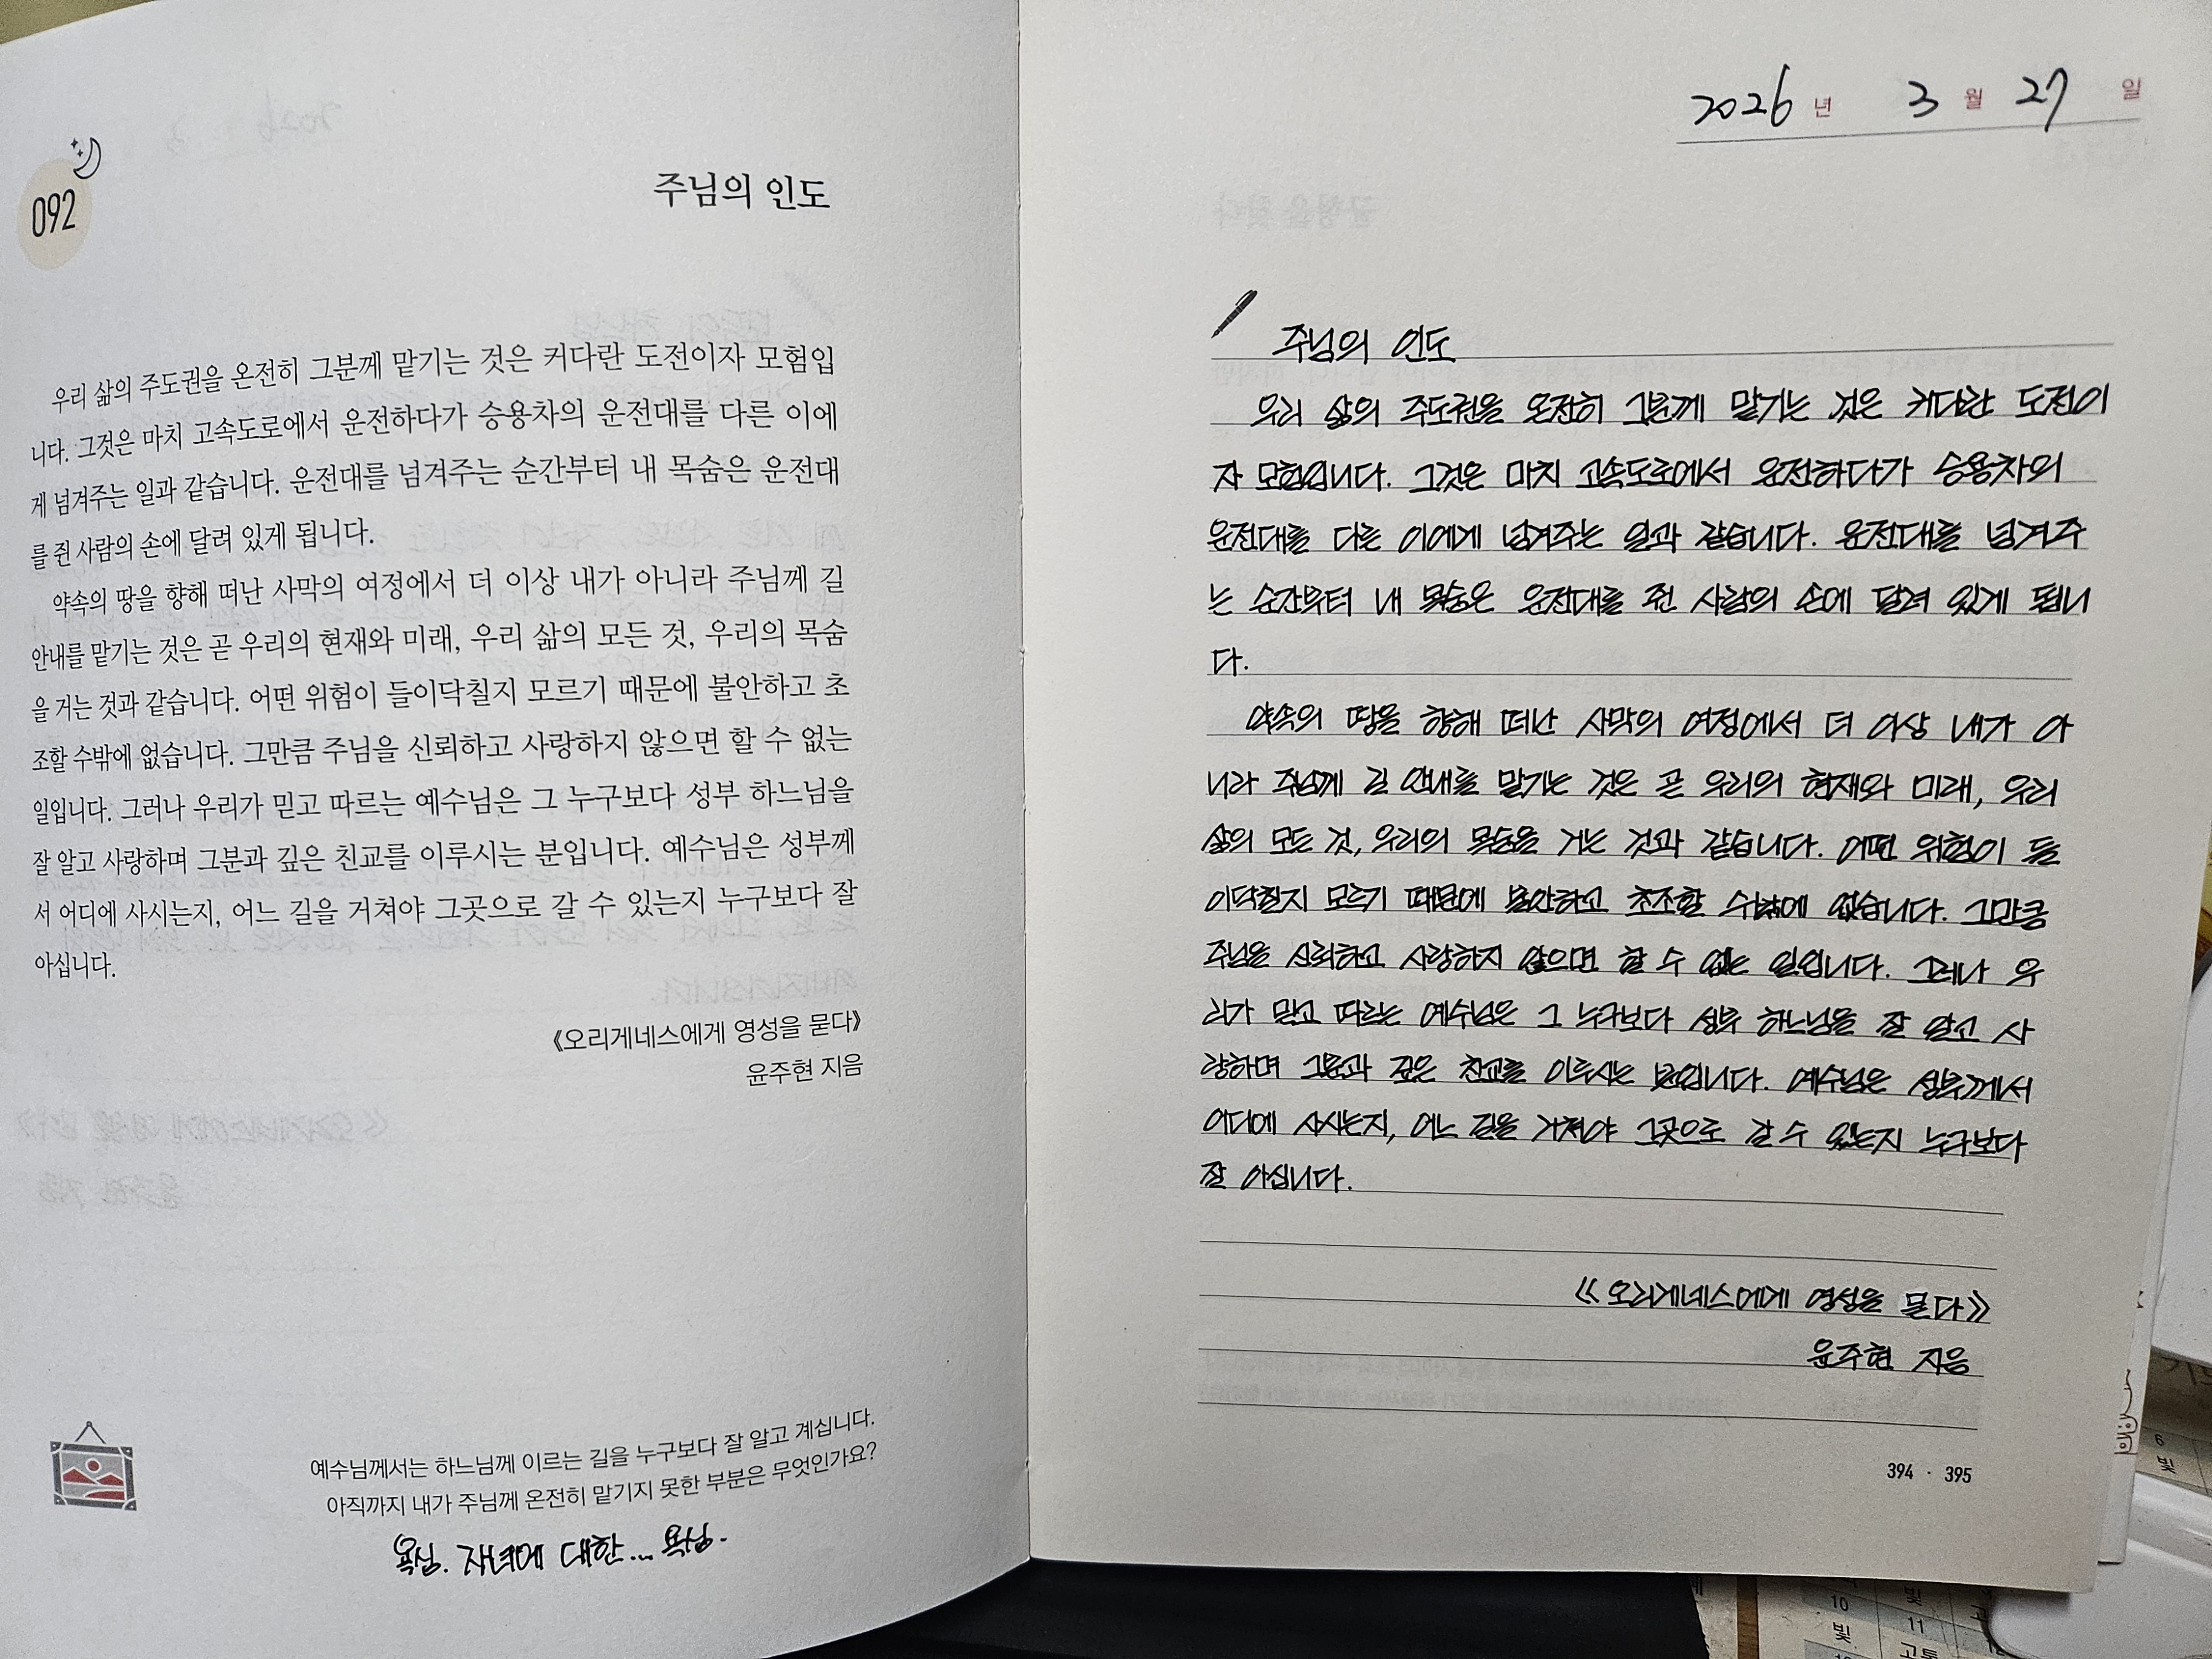 092
주님의 인도
우리 삶의 주도권을 온전히 그분께 맡기는 것은 커다란 도전이자 모험입
니다. 그것은 마치 고속도로에서 운전하다가 승용차의 운전대를 다른 이에
게 넘겨주는 일과 같습니다. 운전대를 넘겨주는 순간부터 내 목숨은 운전대
를 쥔 사람의 손에 달려 있게 됩니다.
약속의 땅을 향해 떠난 사막의 여정에서 더 이상 내가 아니라 주님께 길
안내를 맡기는 것은 곧 우리의 현재와 미래, 우리 삶의 모든 것, 우리의 목숨
을 거는 것과 같습니다. 어떤 위험이 들이닥칠지 모르기 때문에 불안하고 초
조할 수밖에 없습니다. 그만큼 주님을 신뢰하고 사랑하지 않으면 할 수 없는
일입니다. 그러나 우리가 믿고 따르는 예수님은 그 누구보다 성부 하느님을
잘 알고 사랑하며 그분과 깊은 친교를 이루시는 분입니다. 예수님은 성부께
서 어디에 사시는지, 어느 길을 거쳐야 그곳으로 갈 수 있는지 누구보다 잘
아십니다.
《오리게네스에게 영성을 묻다》
윤주현 지음
예수님께서는 하느님께 이르는 길을 누구보다 잘 알고 계십니다.
아직까지 내가 주님께 온전히 맡기지 못한 부분은 무엇인가요?
욕심. 자녀에 대한... 욕심.
2026년 3월 27일
주님의 인도
우리 삶의 주도권을 온전히 그분께 맡기는 것은 커다란 도전이
자 모험입니다. 그것은 마치 고속도로에서 운전하다가 승용차의
운전대를 다른 이에게 넘겨주는 일과 같습니다. 운전대를 넘겨주
는 순간부터 내 목숨은 운전대를 쥔 사람의 손에 달려 있게 됩니
다.
약속의 땅을 향해 떠난 사막의 여정에서 더 이상 내가 아
니라 주님께 길 안내를 맡기는 것은 곧 우리의 현재와 미래, 우리
삶의 모든 것, 우리의 목숨을 거는 것과 같습니다. 어떤 위험이 들
이닥칠지 모르기 때문에 불안하고 초조할 수밖에 없습니다. 그만큼
주님을 신뢰하고 사랑하지 않으면 할 수 없는 일입니다. 그러나 우
리가 믿고 따르는 예수님은 그 누구보다 성부 하느님을 잘 알고 사
랑하며 그분과 깊은 친교를 이루시는 분입니다. 예수님은 성부께서
어디에 사시는지, 어느 길을 거쳐야 그곳으로 갈 수 있는지 누구보다
잘 아십니다.
《오리게네스에게 영성을 묻다》
윤주현 지음
394 · 395
6
빛
10
빛
11